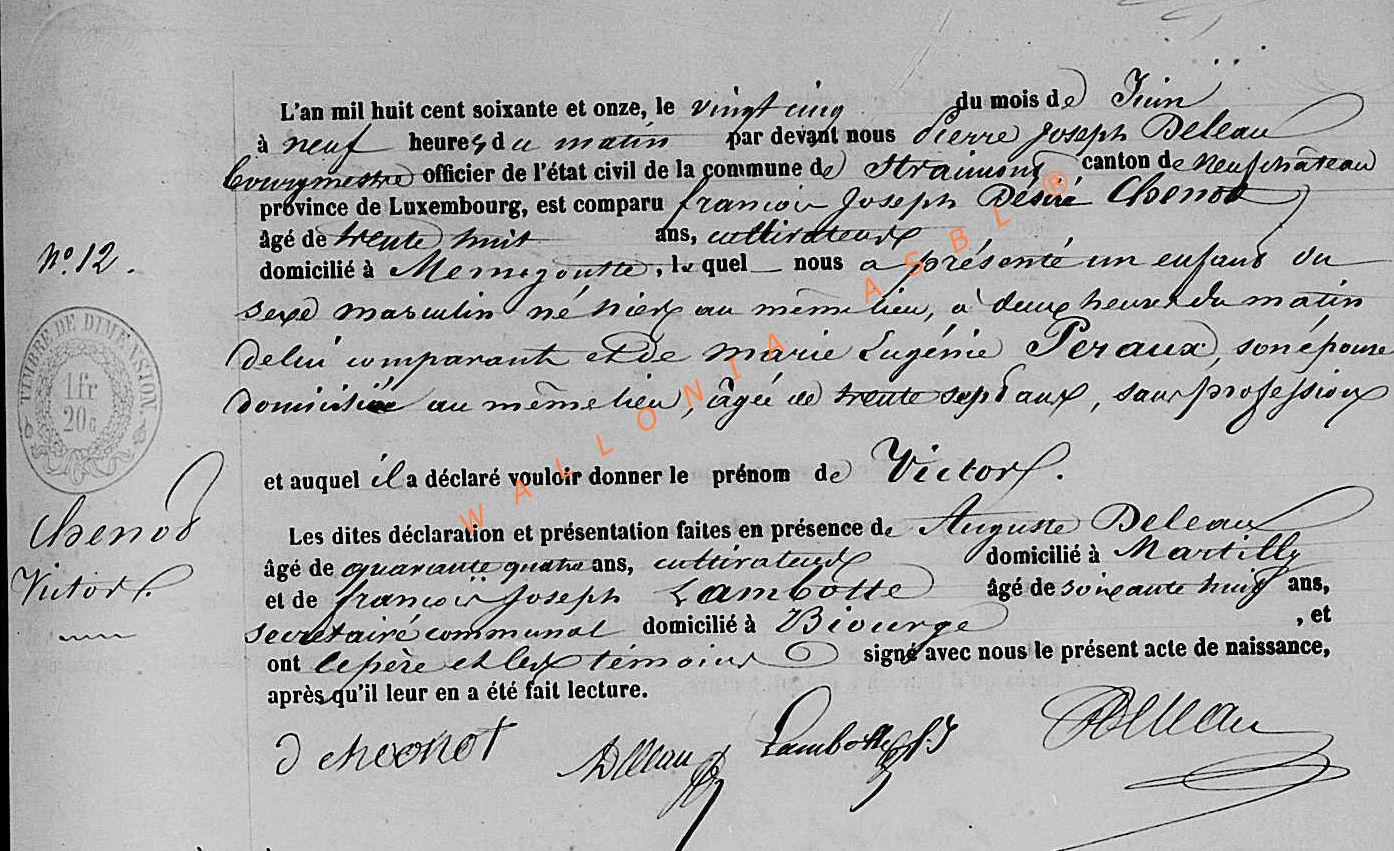 L'an mil huit cent soixante et onze, le vingt cinq du mois de Juin
à neuf heures du matin par devant nous Pierre Joseph Deleau
Bourgmestre officier de l'état civil de la commune de Straimont canton de Neufchâteau
province de Luxembourg, est comparu françois Joseph Désiré Chenot
âgé de trente huit ans, cultivateur
N° 12.
domicilié à Menugoutte, le quel nous a présenté un enfant du
sexe masculin né hier au même lieu, à deux heures du matin
de lui comparant et de Marie Eugénie Peraux, son épouse
domiciliée au même lieu, âgée de trente sept ans, sans profession
TIMBRE DE DIMENSION.
1 fr
20 c
et auquel il a déclaré vouloir donner le prénom de Victor.
Chenot
Victor.
Les dites déclaration et présentation faites en présence de Auguste Deleau
âgé de quarante quatre ans, cultivateur domicilié à Martilly
et de françois Joseph Lambotte âgé de soixante huit ans,
secretaire communal domicilié à Biourge , et
ont le père et les témoins signé avec nous le présent acte de naissance,
après qu'il leur en a été fait lecture.
D chenot ADeleau Lambotte f.J Deleau
WALLONIA ASBL ®